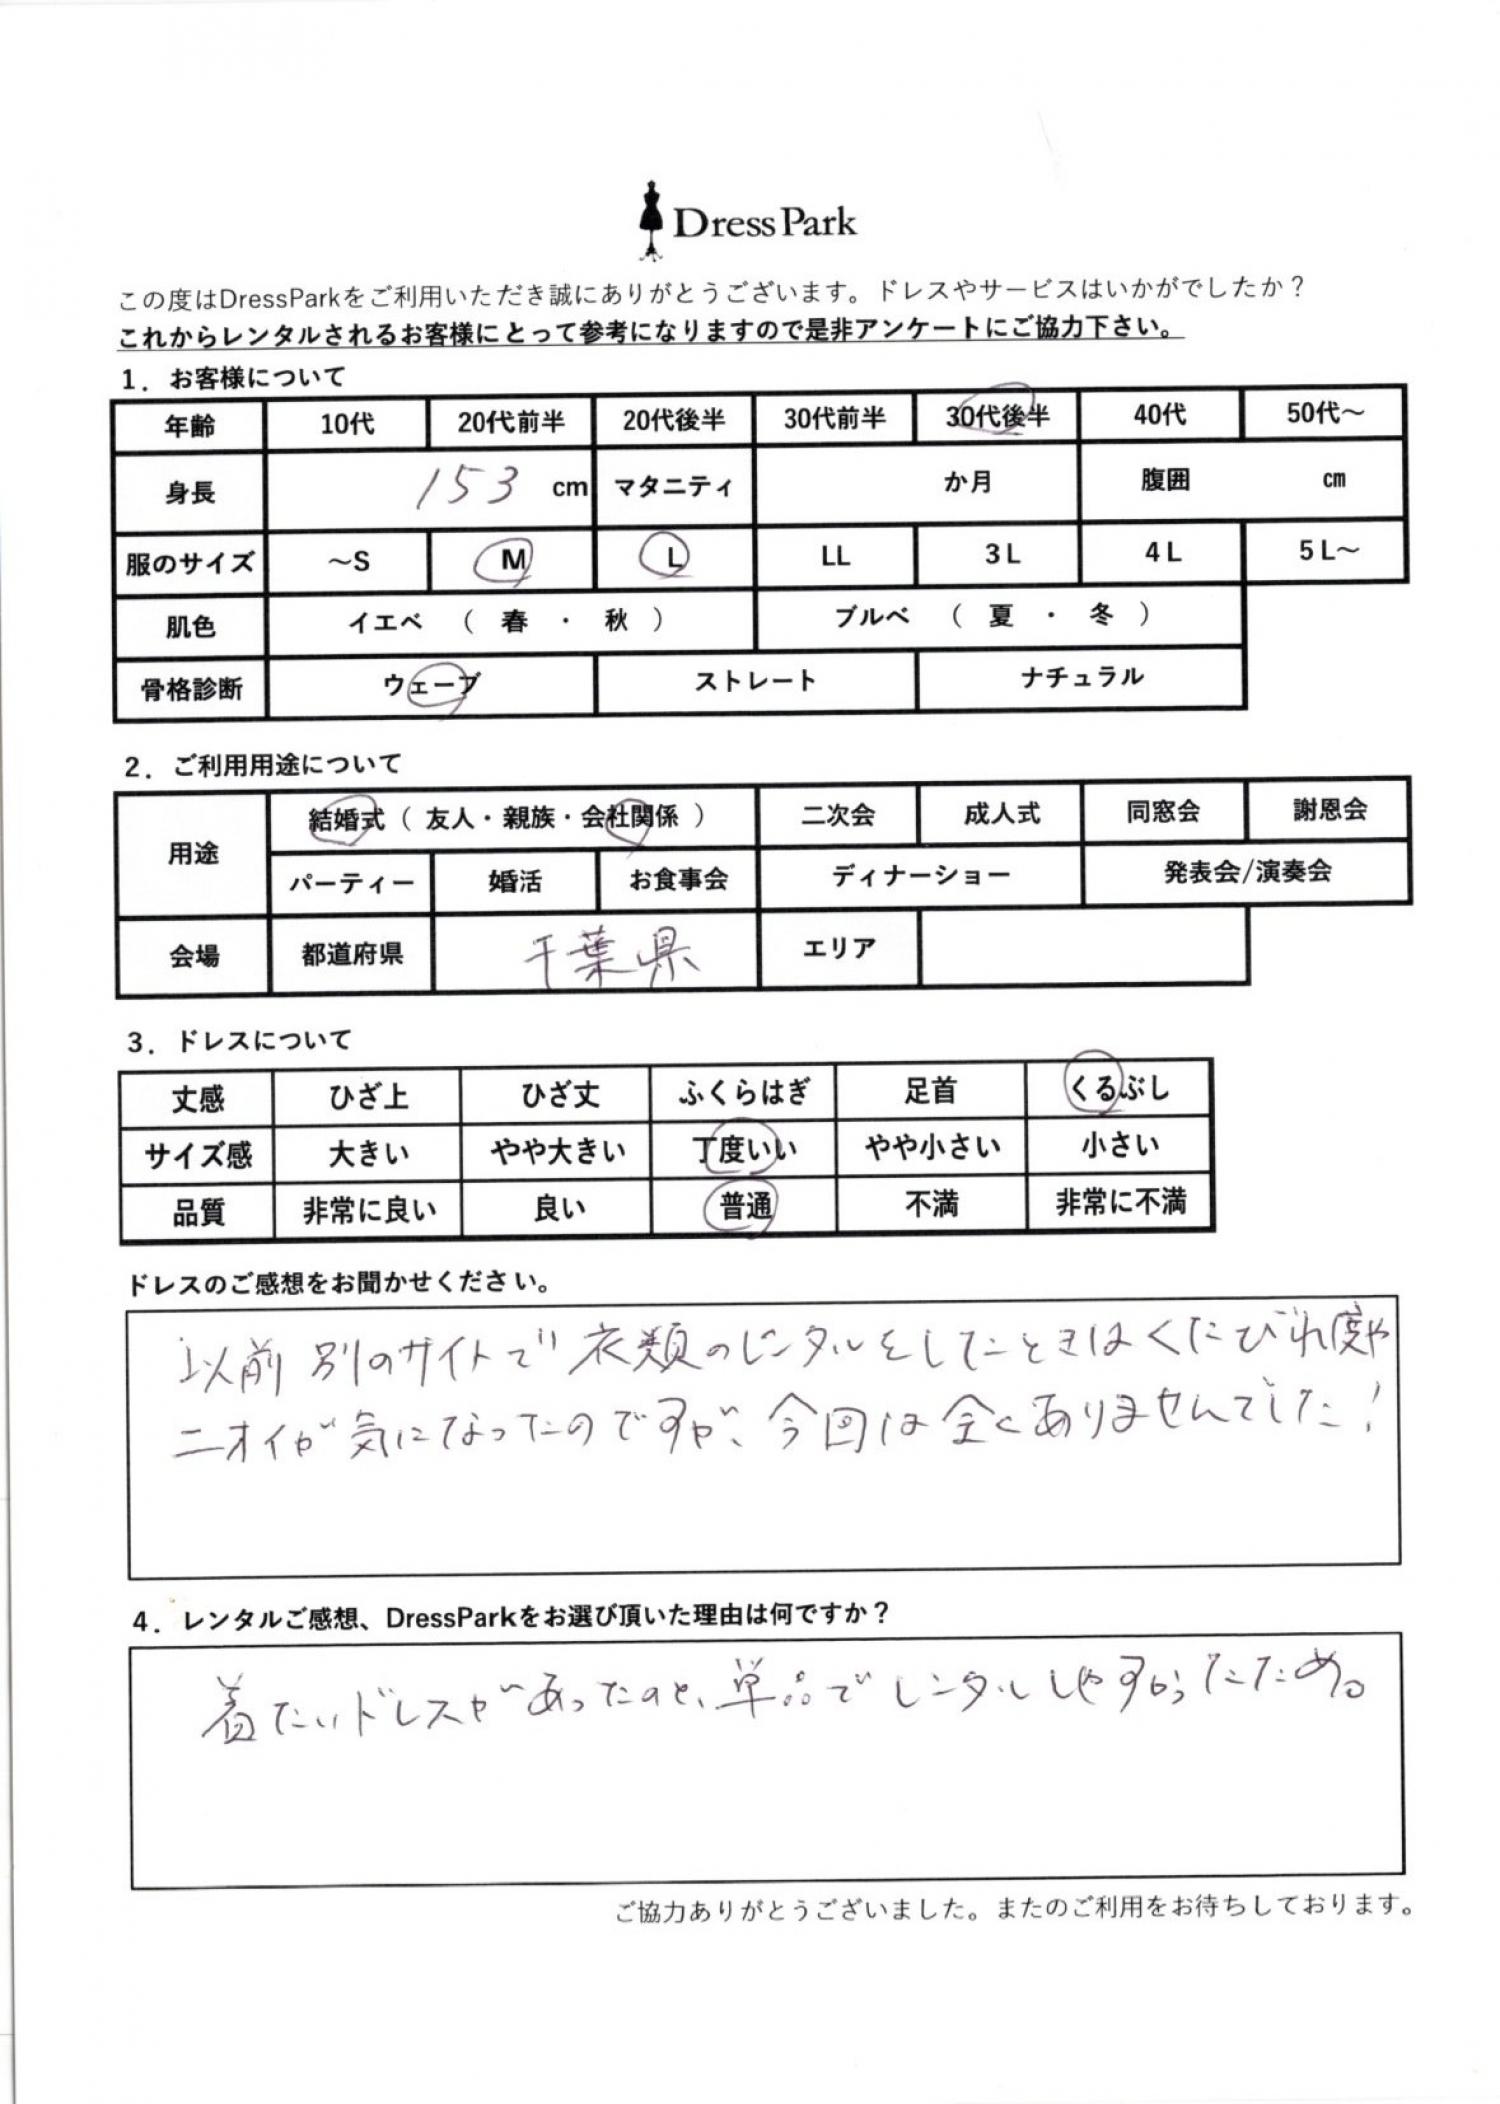 Dress Park
この度はDressParkをご利用いただき誠にありがとうございます。ドレスやサービスはいかがでしたか？
これからレンタルされるお客様にとって参考になりますので是非アンケートにご協力下さい。
1．お客様について
年齢 10代 20代前半 20代後半 30代前半 30代後半 40代 50代～
身長 153 cm マタニティ か月 腹囲 ㎝
服のサイズ ～S M L LL 3L 4L 5L～
肌色 イエベ （ 春 ・ 秋 ） ブルベ （ 夏 ・ 冬 ）
骨格診断 ウェーブ ストレート ナチュラル
2．ご利用用途について
用途 結婚式（ 友人・親族・会社関係 ） 二次会 成人式 同窓会 謝恩会
パーティー 婚活 お食事会 ディナーショー 発表会/演奏会
会場 都道府県 千葉県 エリア
3．ドレスについて
丈感 ひざ上 ひざ丈 ふくらはぎ 足首 くるぶし
サイズ感 大きい やや大きい 丁度いい やや小さい 小さい
品質 非常に良い 良い 普通 不満 非常に不満
ドレスのご感想をお聞かせください。
以前別のサイトで衣類のレンタルをしたときはくたびれ度や
ニオイが気になったのですが、今回は全くありませんでした！
4．レンタルご感想、DressParkをお選び頂いた理由は何ですか？
着たいドレスがあったのと、単品でレンタルしやすかったため。
ご協力ありがとうございました。またのご利用をお待ちしております。